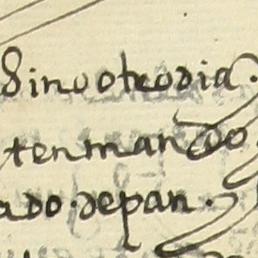 dino otro dia.
tenmando
ado. de pan.